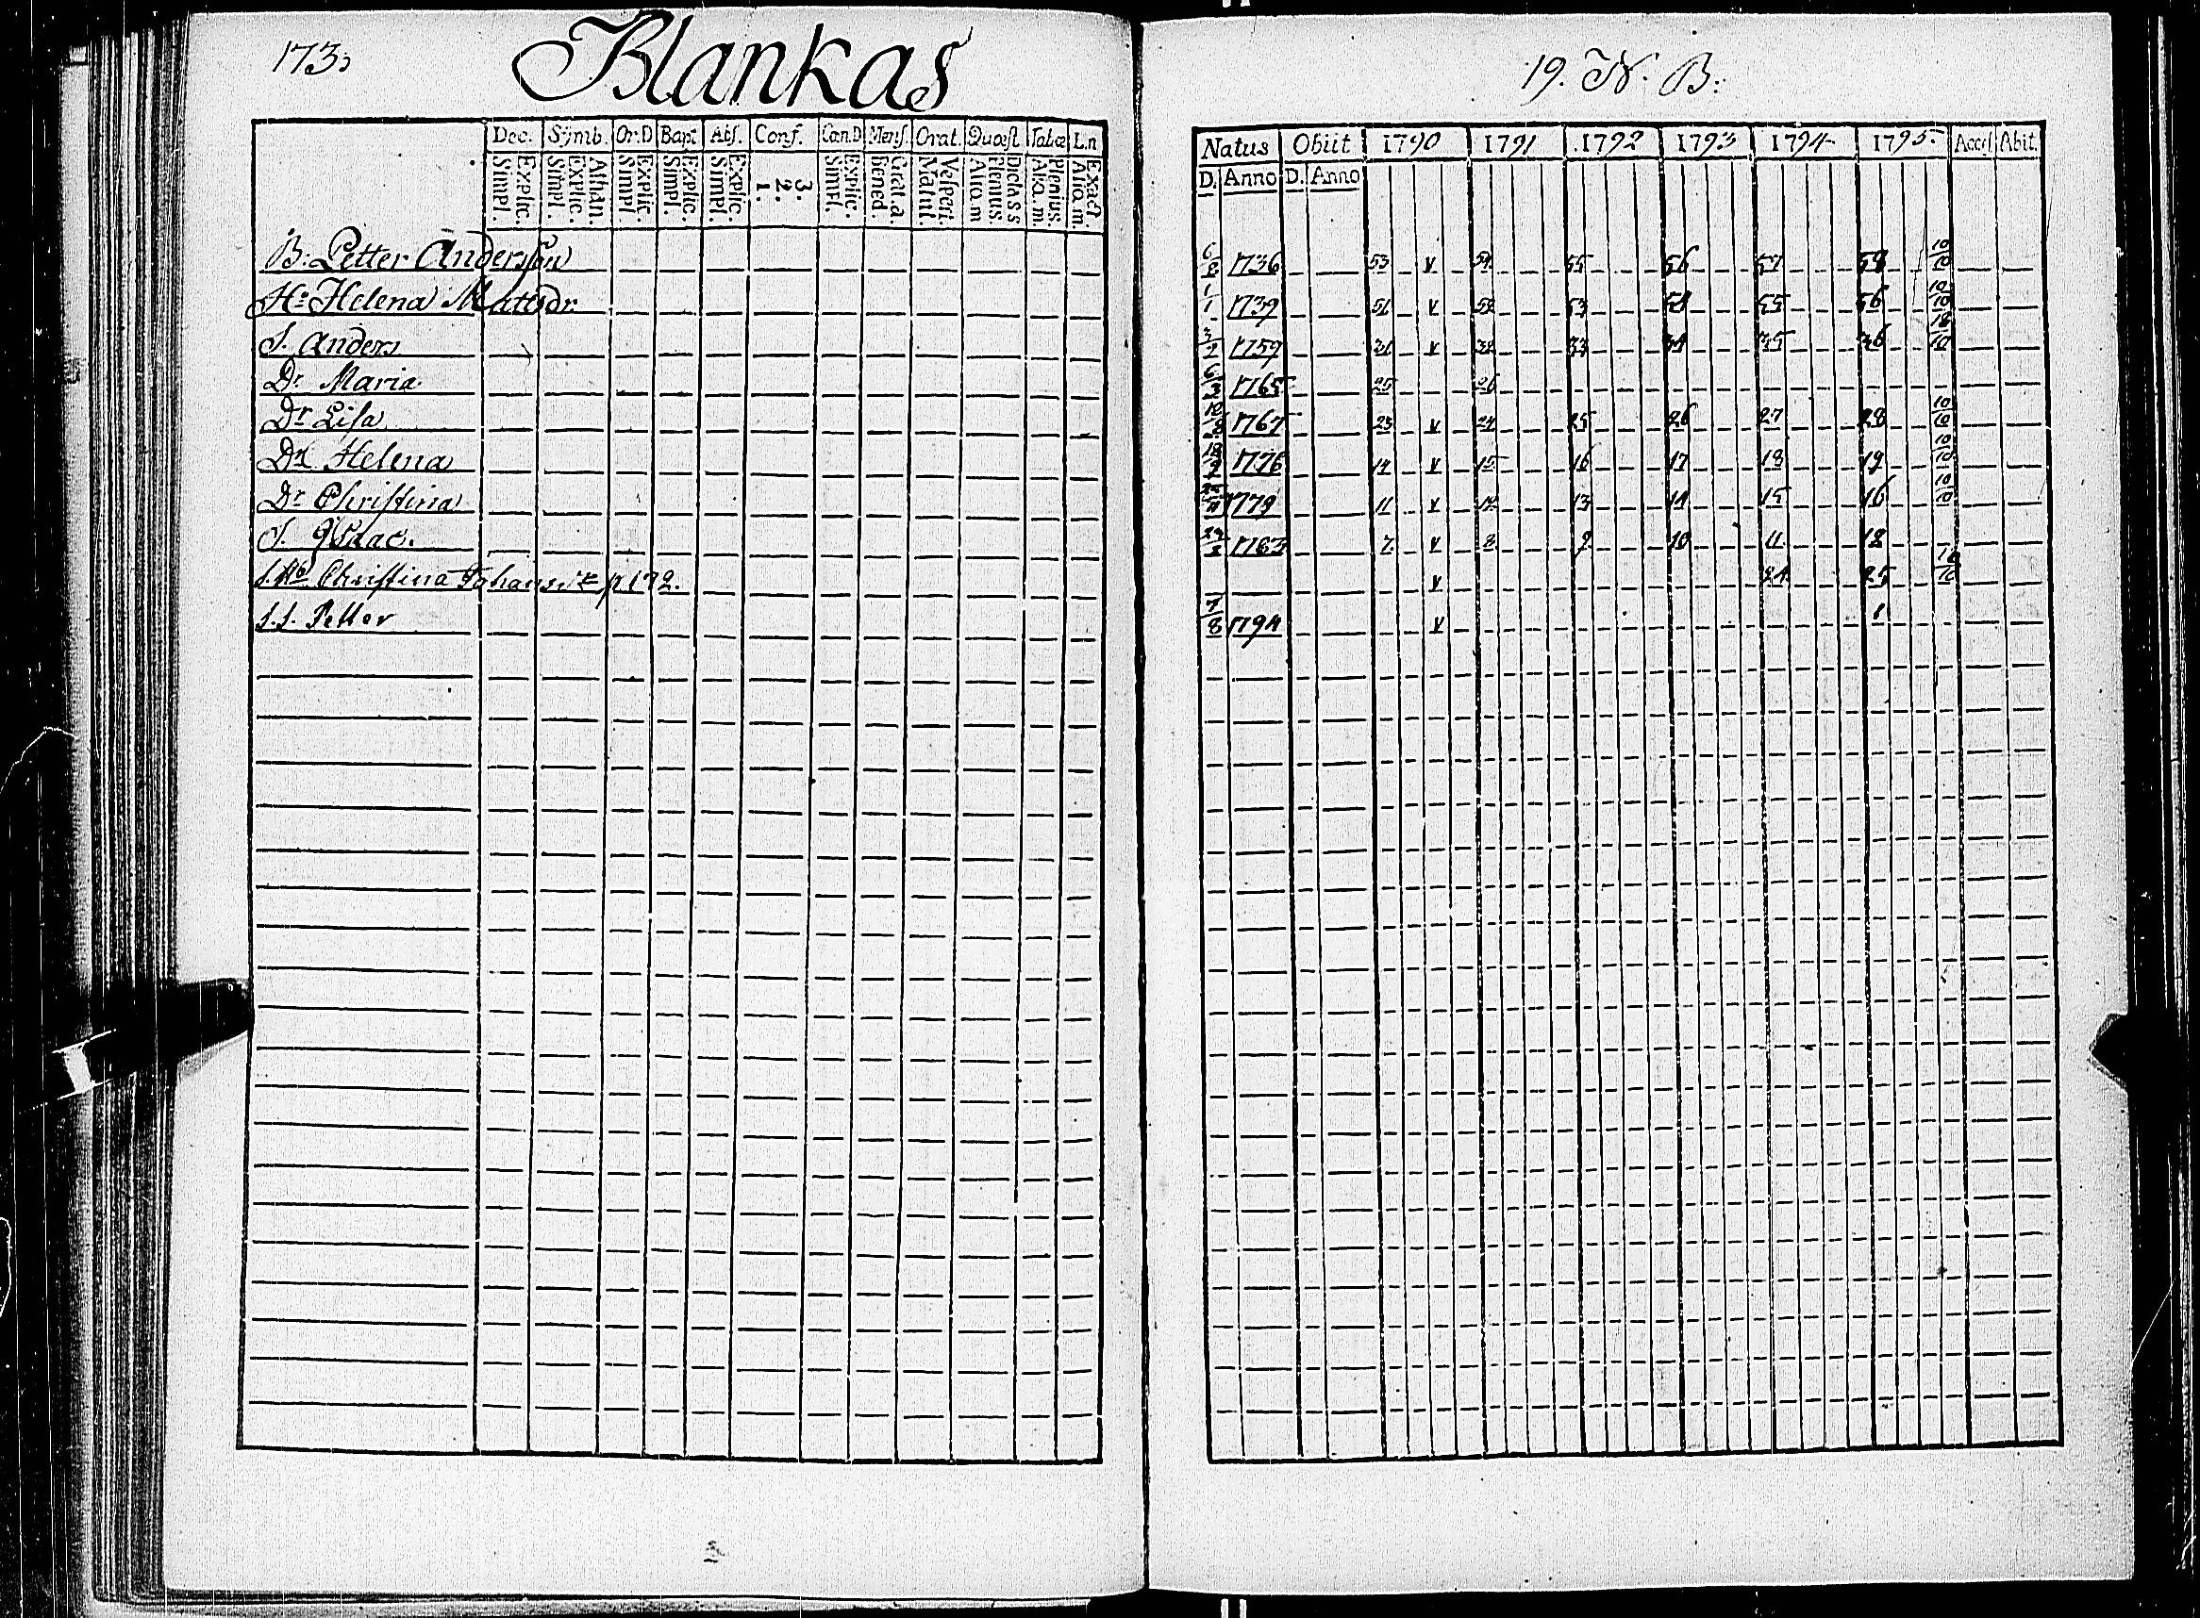 173
Blankas
Dec. Symb. Or.D Bapt Abs. Conf. Can.D Mens. Orat. Quæst Tabœ L.n
Explic. Simpl. Athan. Explic. Simpl. Explic. Simpl Explic. Simpl. Explic. Simpl. 3. 2. 1. Explic. Simpl. Grat.a. Bened. Vesperi. Matut. Dict.ss Plenius. Aliq.m Plenius. Aliq.m. Exact Aliq.m.
B: Petter Andersson
H: Helena Mattsdr.
S. Anders
Dr Maria
Dr Lisa
Dr Helena
Dr Christina
S. Isaac.
Christina p 172.
S.S. Petter
19. N. B:
Natus Obiit 1790 1791 1792 1793 1794 1795 Acces Abit.
D. Anno D. Anno
1736 53 v 54 55 56 57 58 10/10
1 1739 51 v 52 53 54 55 56 10/10
1759 31 v 32 33 34 35 36
1765 25 26
1767 23 v 24 25 26 27 28 10/10
1776 14 v 15 16 17 18 19 10/10
1779 11 v 12 13 14 15 16 10/10
1783 7 v 8 9 10 11 12
v 24 25
7/8 1794 v 1